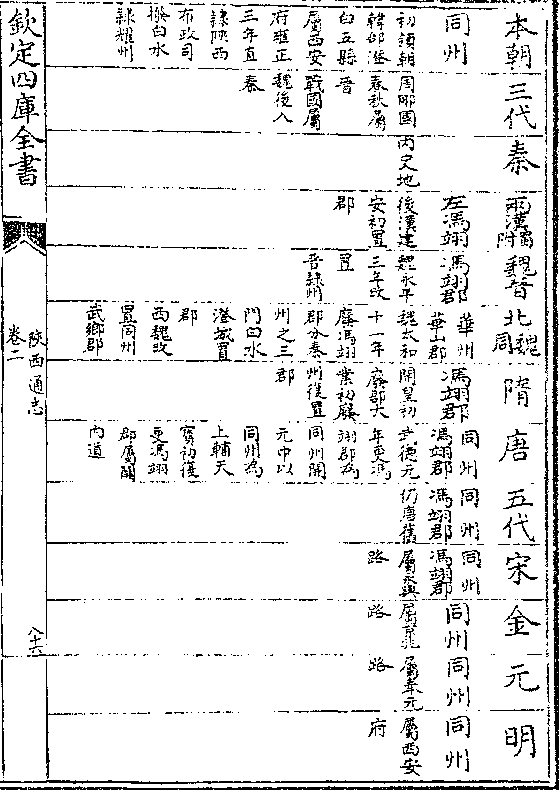 本朝
同州
初領朝
韓郃澄
白五縣
屬西安
府雍正
三年直
隷陜西
布政司
撥白水
隷耀州
三代
周國
春秋屬
晉
戰國屬
魏後入
秦
秦
內史地
兩漢蜀附
左馮翊
後漢建
安初置
郡
魏晉
馮翊郡
魏永平
三年改
置
晉隷州
北魏周
華州
華山郡
魏太和
十一年
廢馮翊
郡分秦
州之三
門白水
澄城置
郡
西魏改
置同州
武鄉郡
隋
馮翊郡
開皇初
廢郡大
業初廢
州復置
郡
唐
同州
馮翊郡
武德元
年更馮
翊郡為
同州開
元中以
同州為
上輔天
寶初復
更馮翊
郡屬關
內道
五代
同州
馮翊郡
仍唐舊
宋
同州
馮翊郡
屬永興
路
金
同州
屬
路
元
同州
屬奉元
路
明
同州
屬西安
府
欽定四庫全書
陜西通志
卷二
八十六